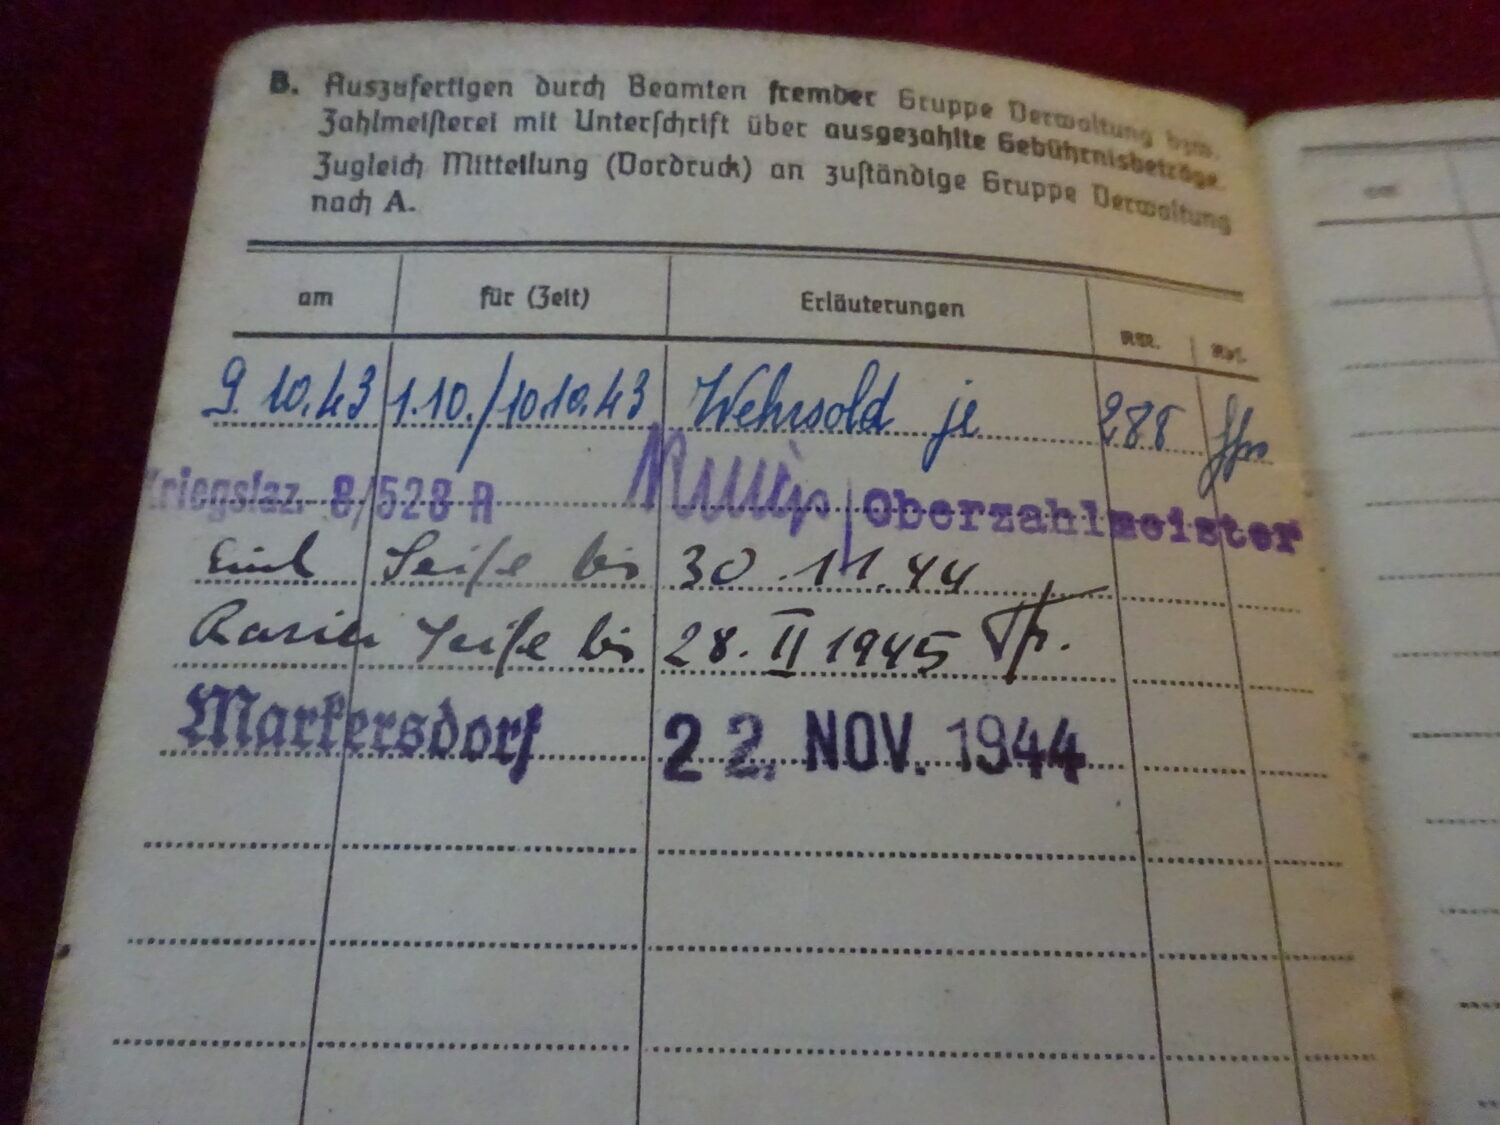 B. Auszufertigen durch Beamten fremder Gruppe Verwaltung bzw.
Zahlmeisterei mit Unterschrift über ausgezahlte Gebührnisbeträge.
Zugleich Mitteilung (Vordruck) an zuständige Gruppe Verwaltung
nach A.
am für (Zeit) Erläuterungen RM. Rpf.
9.10.43 1.10./10.10.43 Wehrsold je 288
Kriegslaz. 8/528 R Oberzahlmeister
Einh Seife bis 30.11.44
Rasier Seife bis 28.II 1945
Markersdorf 22. NOV. 1944
am